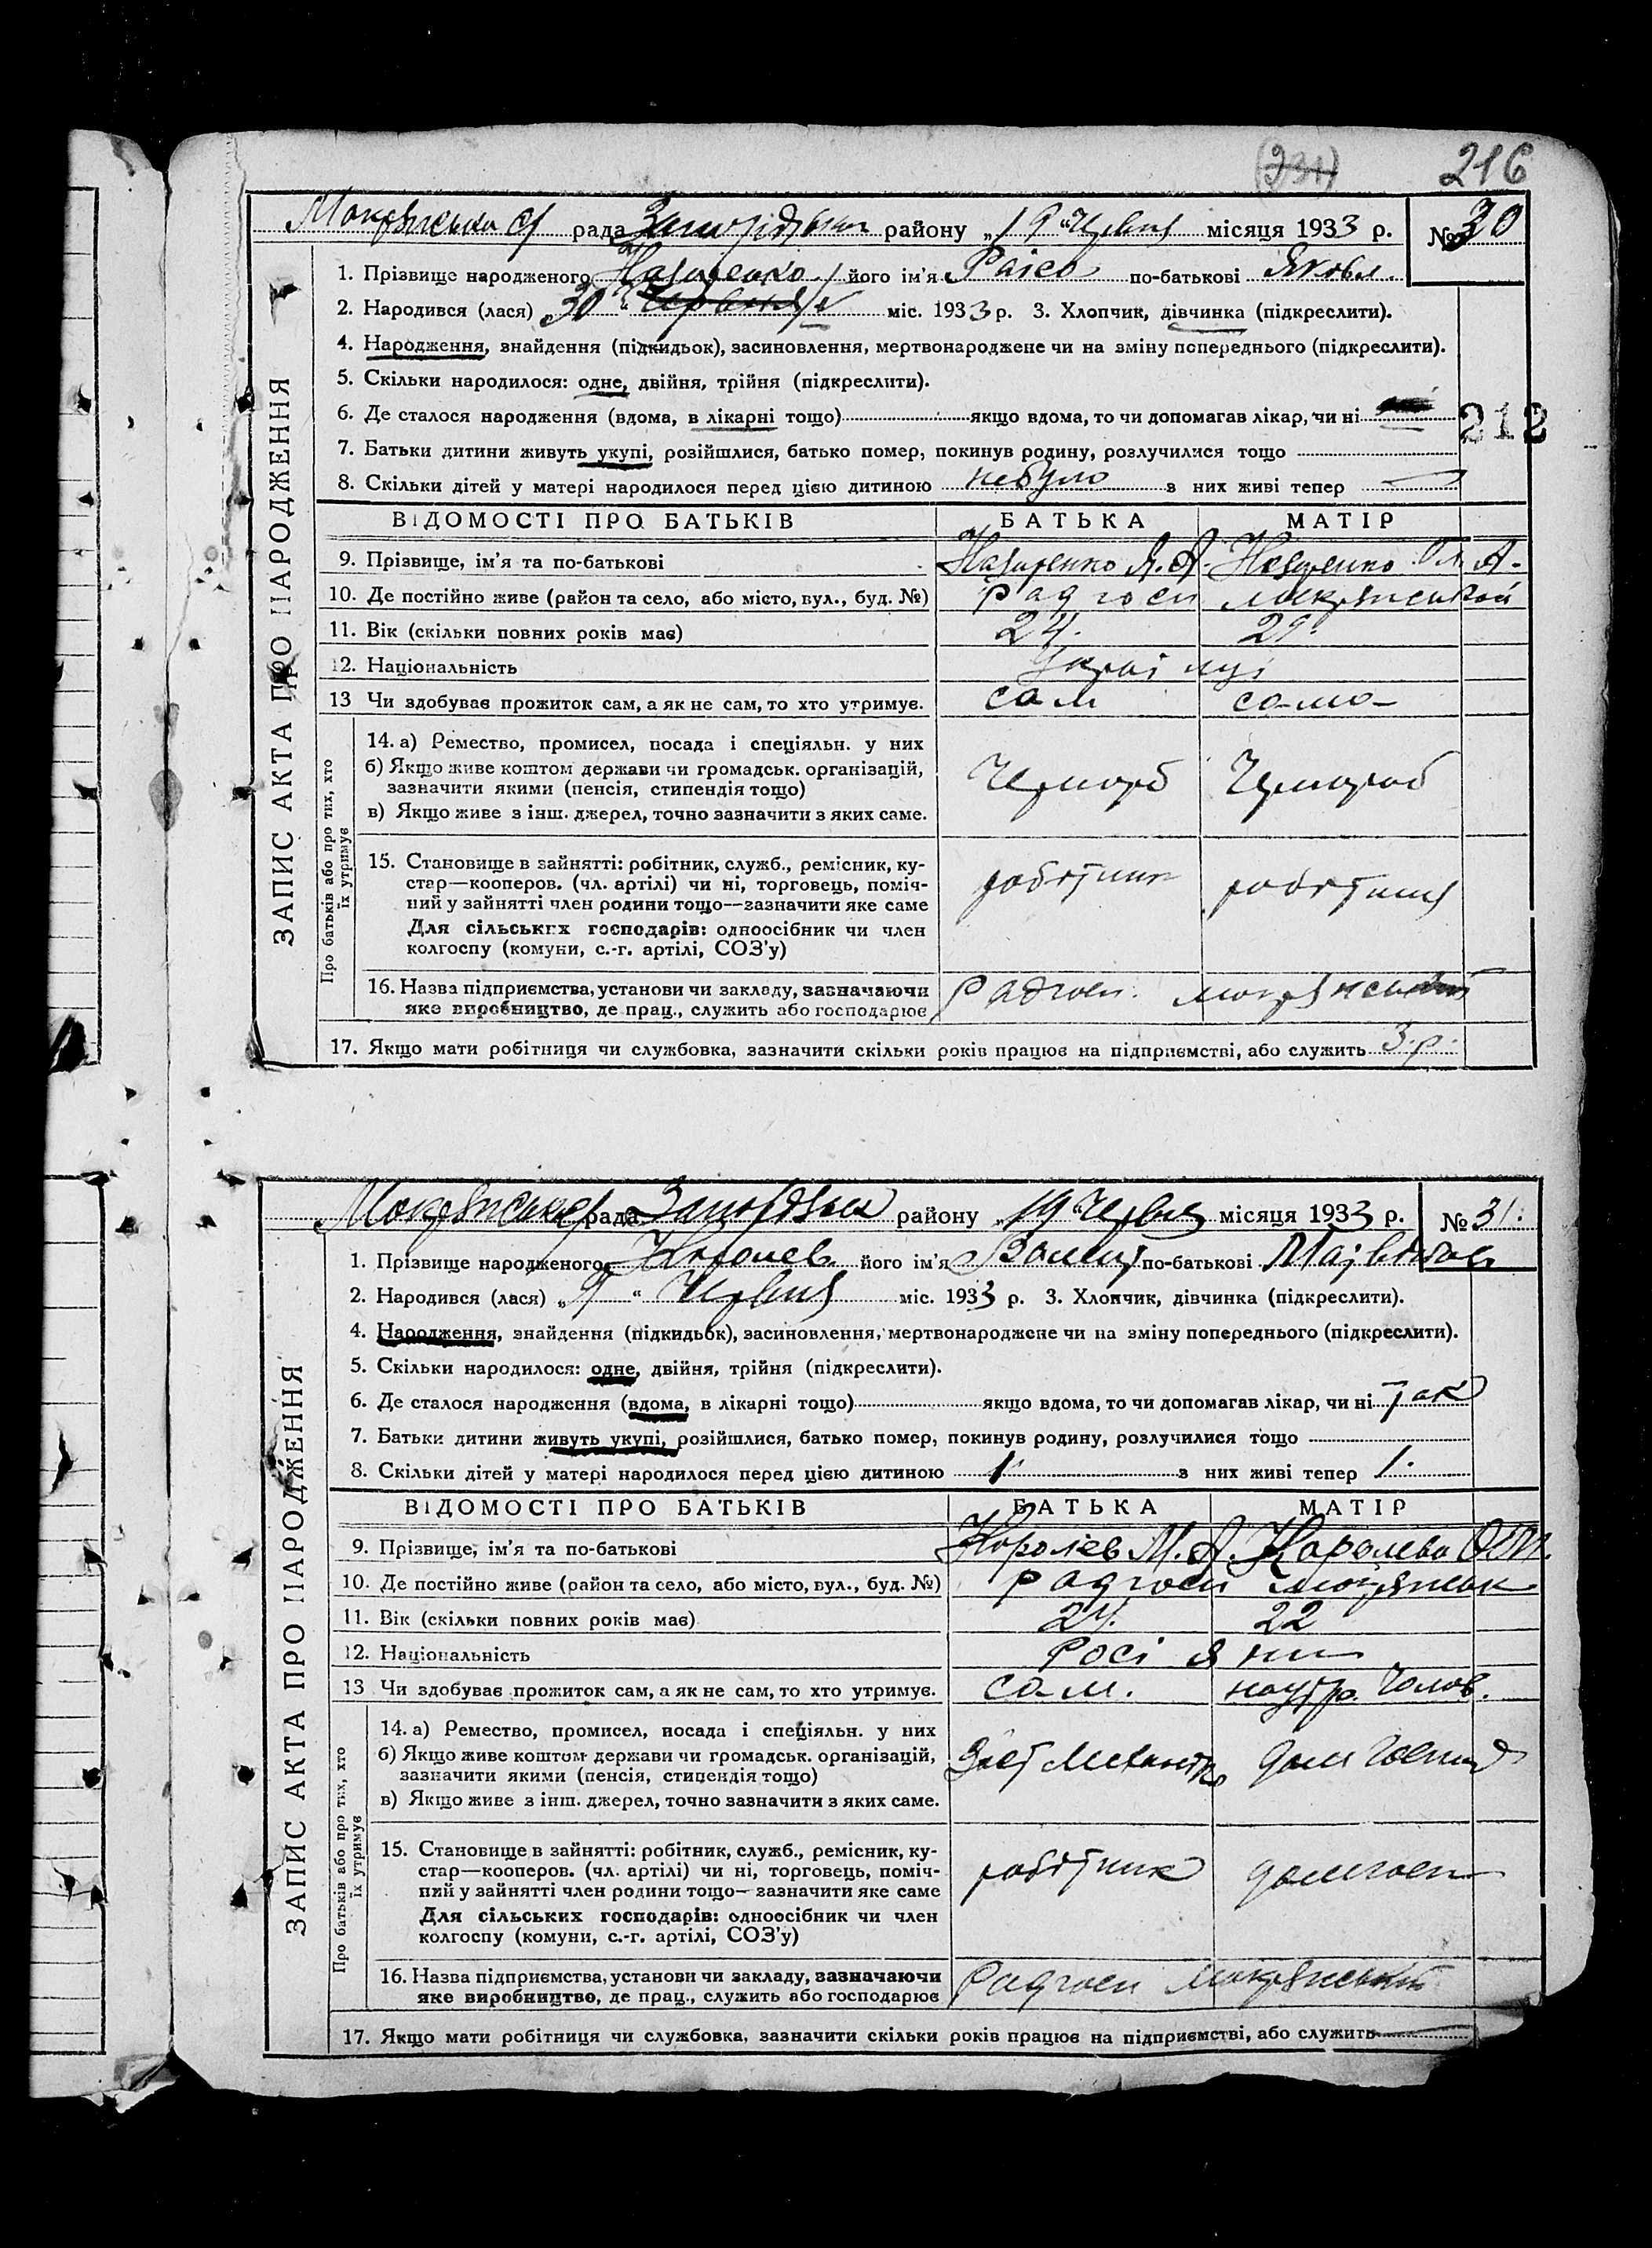 (231) 216
рада району „19“ Червня місяця 1933 р. № 30
1. Прізвище народженого Назаренко його ім'я Раіса по-батькові Яковл.
2. Народився (лася) „30“ міс. 1933 р. 3. Хлопчик, дівчинка (підкреслити).
4. Народження, знайдення (підкидьок), засиновлення, мертвонароджене чи на зміну попереднього (підкреслити).
5. Скільки народилося: одне, двійня, трійня (підкреслити).
6. Де сталося народження (вдома, в лікарні тощо) якщо вдома, то чи допомагав лікар, чи ні
212
7. Батьки дитини живуть укупі, розійшлися, батько помер, покинув родину, розлучилися тощо
8. Скільки дітей у матері народилося перед цією дитиною небуло з них живі тепер —
ВІДОМОСТІ ПРО БАТЬКІВ БАТЬКА МАТІР
9. Прізвище, ім'я та по-батькові Назаренко Я. А. Назаренко Ол. А.
10. Де постійно живе (район та село, або місто, вул., буд. №) Радгосп
11. Вік (скільки повних років має) 24. 21.
12. Національність Українці
13 Чи здобуває прожиток сам, а як не сам, то хто утримує. сам сама
14. а) Ремество, промисел, посада і спеціяльн. у них
б) Якщо живе коштом держави чи громадськ. організацій,
зазначити якими (пенсія, стипендія тощо)
в) Якщо живе з інш. джерел, точно зазначити з яких саме.
Чорнороб Чорнороб
15. Становище в зайнятті: робітник, служб., ремісник, ку-
стар—кооперов. (чл. артілі) чи ні, торговець, поміч-
ний у зайнятті член родини тощо—зазначити яке саме
Для сільських господарів: одноосібник чи член
колгоспу (комуни, с.-г. артілі, СОЗ'у)
робітник робітниця
16. Назва підприємства, установи чи закладу, зазначаючи
яке виробництво, де прац., служить або господарює
Радгосп. Мокрянський
17. Якщо мати робітниця чи службовка, зазначити скільки років працює на підприємстві, або служить 3 р.
ЗАПИС АКТА ПРО НАРОДЖЕННЯ
Про батьків або про тих, хто
їх утримує
рада району „19“ Червня місяця 1933 р. № 31.
1. Прізвище народженого Королев його ім'я по-батькові
2. Народився (лася) Червня міс. 1933 р. 3. Хлопчик, дівчинка (підкреслити).
4. Народження, знайдення (підкидьок), засиновлення, мертвонароджене чи на зміну попереднього (підкреслити).
5. Скільки народилося: одне, двійня, трійня (підкреслити).
6. Де сталося народження (вдома, в лікарні тощо) якщо вдома, то чи допомагав лікар, чи ні так
7. Батьки дитини живуть укупі, розійшлися, батько помер, покинув родину, розлучилися тощо
8. Скільки дітей у матері народилося перед цією дитиною 1 з них живі тепер 1.
ВІДОМОСТІ ПРО БАТЬКІВ БАТЬКА МАТІР
9. Прізвище, ім'я та по-батькові Королев М. А. Королева
10. Де постійно живе (район та село, або місто, вул., буд. №) Радгосп
11. Вік (скільки повних років має) 24. 22
12. Національність Росіяни
13 Чи здобуває прожиток сам, а як не сам, то хто утримує. сам. чолов.
14. а) Ремество, промисел, посада і спеціяльн. у них
б) Якщо живе коштом держави чи громадськ. організацій,
зазначити якими (пенсія, стипендія тощо)
в) Якщо живе з інш. джерел, точно зазначити з яких саме.
15. Становище в зайнятті: робітник, служб., ремісник, ку-
стар—кооперов. (чл. артілі) чи ні, торговець, поміч-
ний у зайнятті член родини тощо—зазначити яке саме
Для сільських господарів: одноосібник чи член
колгоспу (комуни, с.-г. артілі, СОЗ'у)
робітник домгосп
16. Назва підприємства, установи чи закладу, зазначаючи
яке виробництво, де прац., служить або господарює
Радгосп Мокрянський
17. Якщо мати робітниця чи службовка, зазначити скільки років працює на підприємстві, або служить
ЗАПИС АКТА ПРО НАРОДЖЕННЯ
Про батьків або про тих, хто
їх утримує